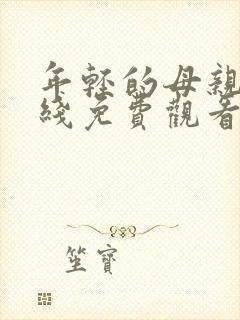 年輕的母親
綫免費觀看
坐寶